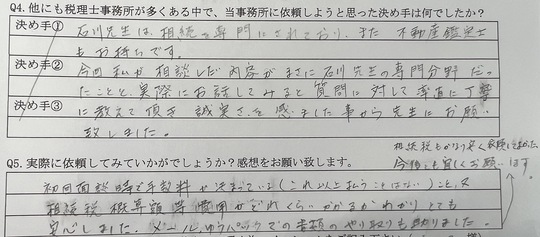 Q4. 他にも税理士事務所が多くある中で、当事務所に依頼しようと思った決め手は何でしたか?
決め手① 石川先生は、相続を専門にされており、また 不動産鑑定士
もお持ちです。
決め手② 今回 私が 相談した内容がまさに石川先生の専門分野だっ
たことと、実際にお話してみると 質問に対して 率直に丁寧
決め手③ に教えて頂き 誠実さを感じました事から先生にお願い
致しました。
Q5. 実際に依頼してみていかがでしょうか?感想をお願い致します。
相続税もかなり
今後も宜しくお願い
初回面談時で手数料が決まっている(これ以上払うことはない)こと、又
相続税概算額等費用がどれくらいかかるかわかりとても
安心しました。メール、ゆうパックでの書類のやり取りも助かりました。